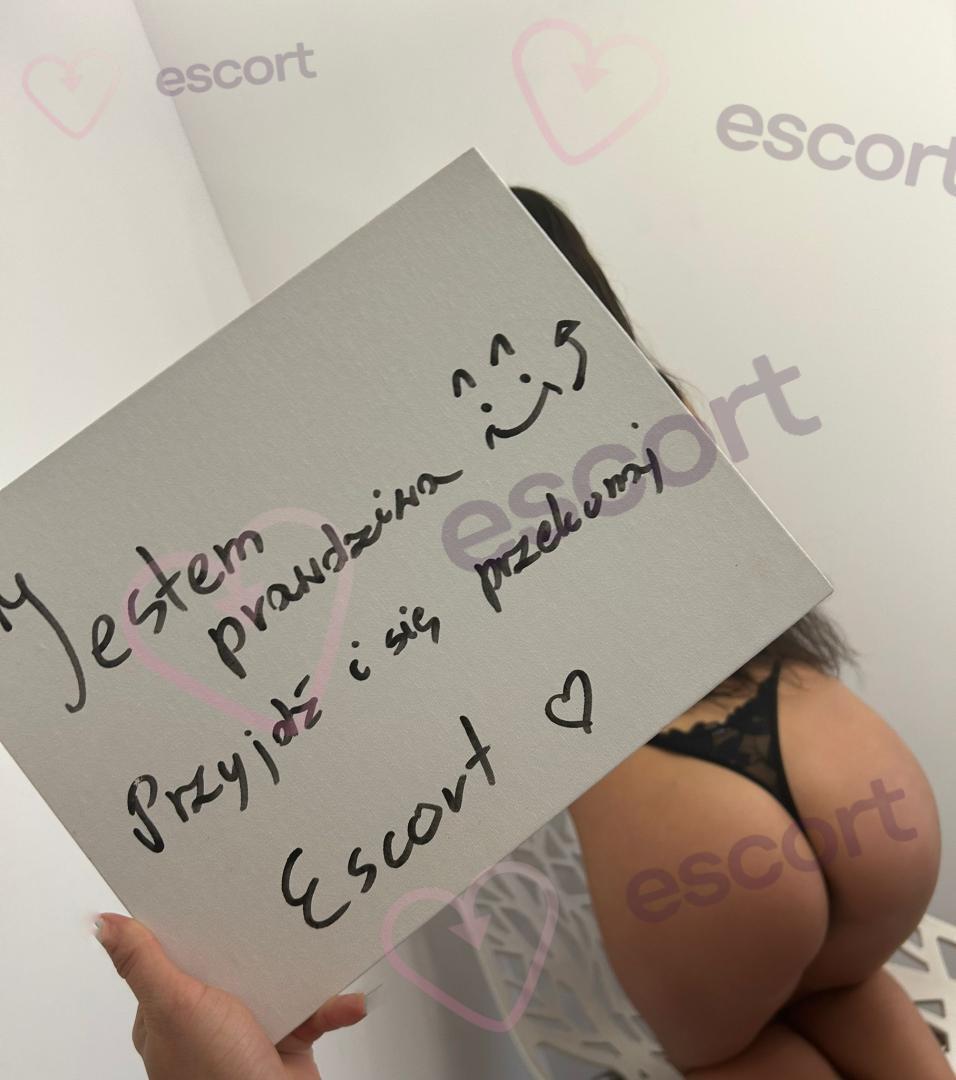 escort
escort
Jestem
prawdziwa
Przyjdź i się przekonaj
escort
Escort ♡
escort